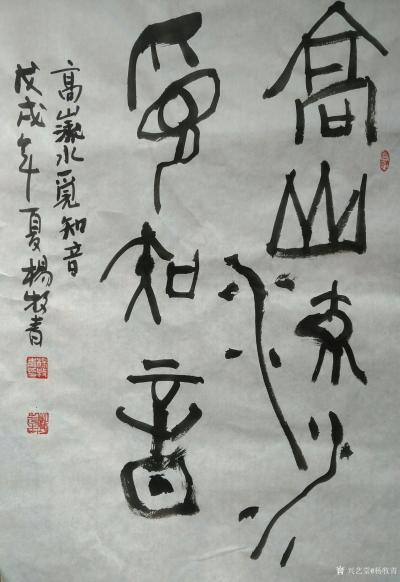 高山流水
觅知音
高山流水觅知音
戊戌年夏杨牧青
兴艺堂@杨牧青